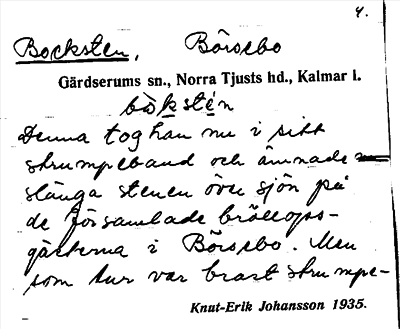 4.
Bocksten, Börsebo
Gärdserums sn., Norra Tjusts hd., Kalmar l.
bòkstén
Denna tog han nu i sitt
strumpeband och ämnade
slänga stenen över sjön på
de församlade bröllops-
gästerna i Börsebo. Men
som tur var brast strumpe-
Knut-Erik Johansson 1935.